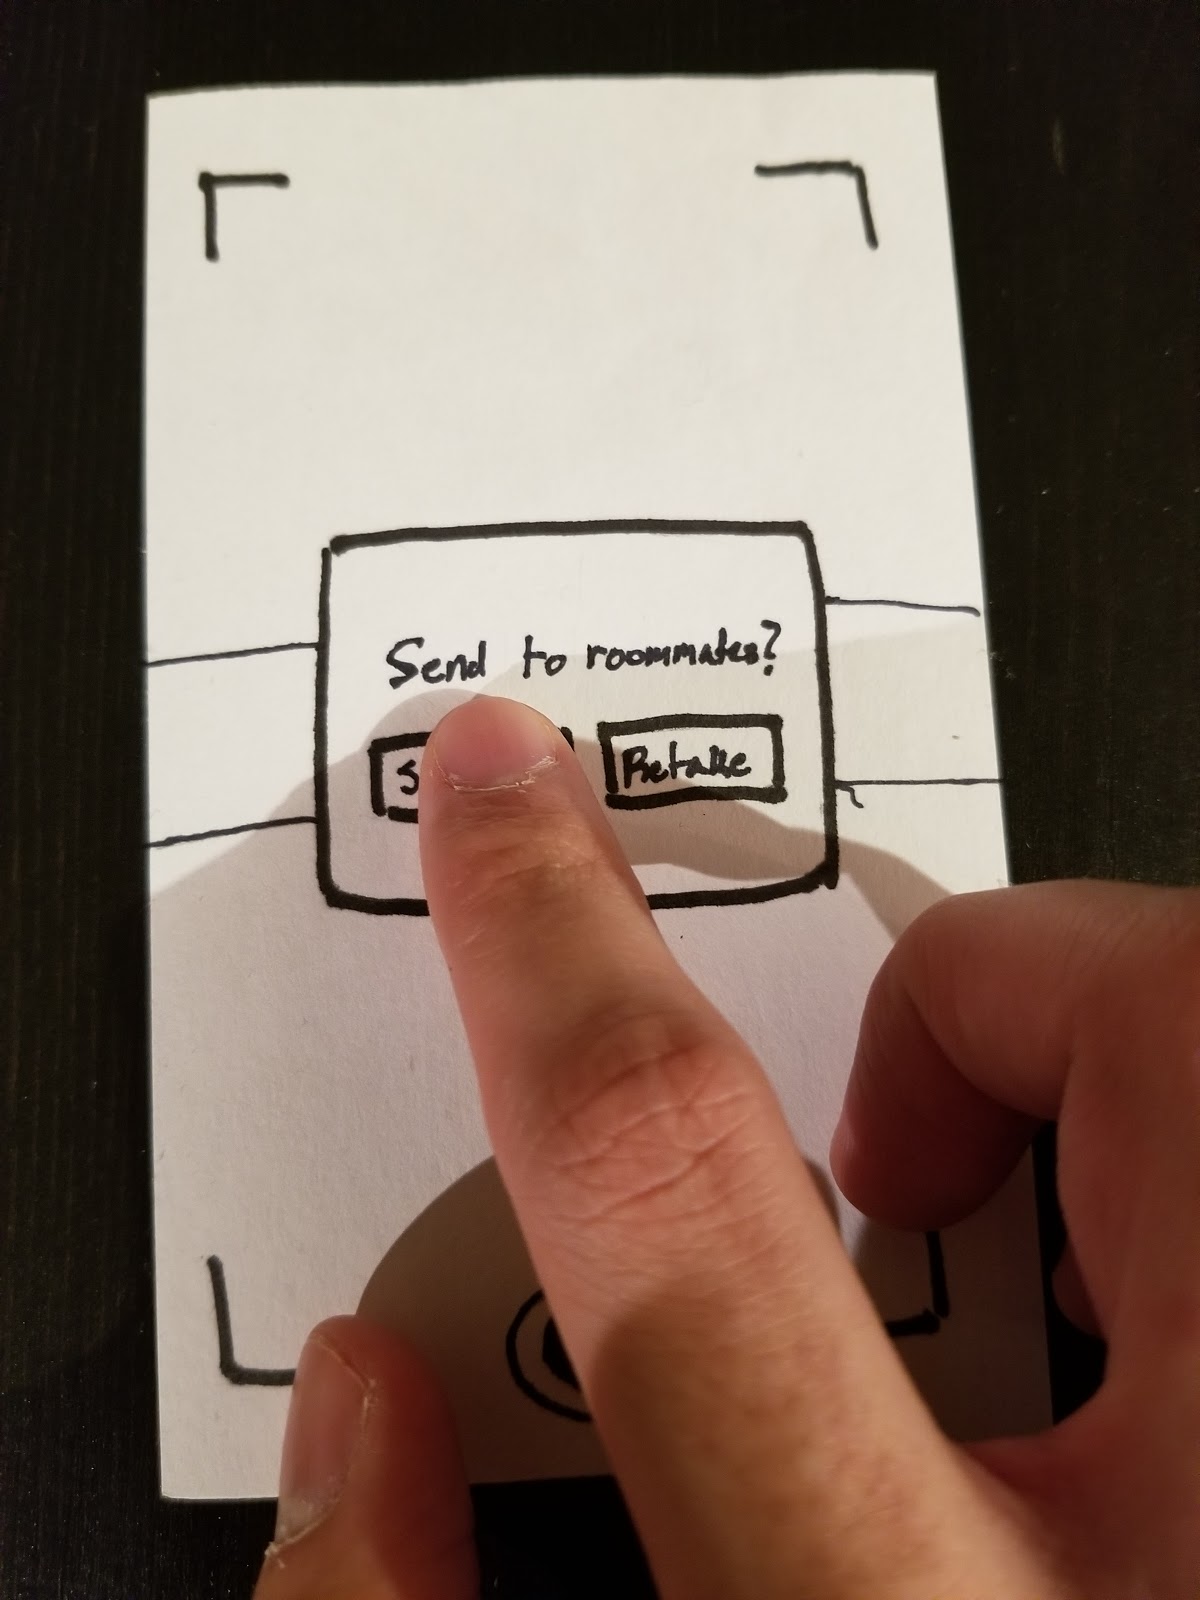 Send to roommates?
Retake